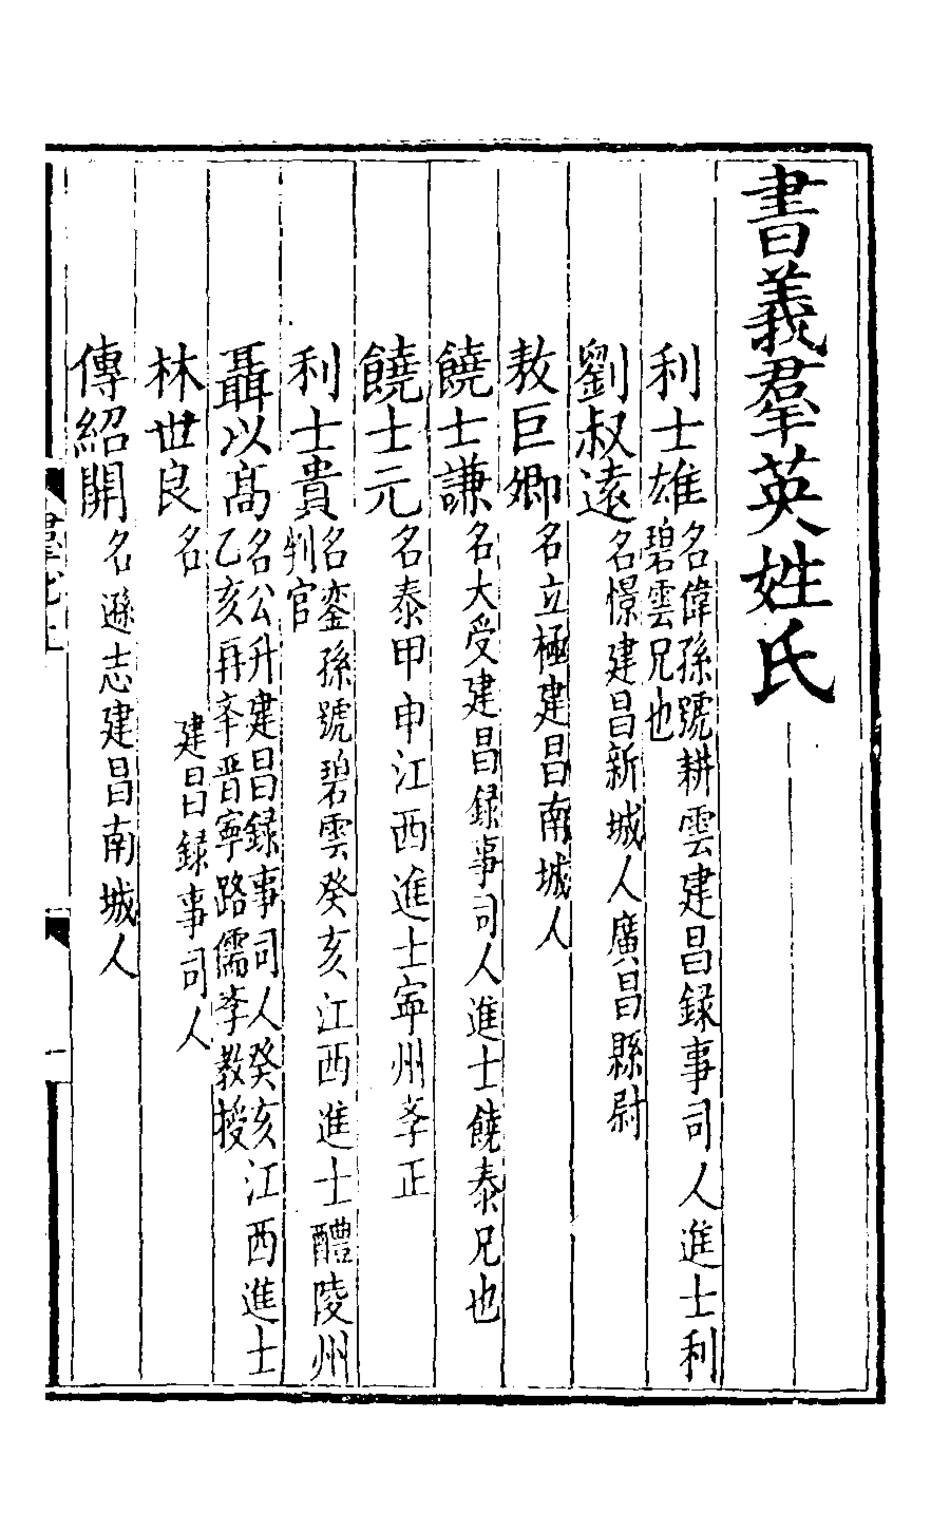 書義羣英姓氏
利士雄 名偉孫號耕雲建昌録事司人進士利
碧雲兄也
劉叔遠 名憬建昌新城人廣昌縣尉
敖巨卿 名立極建昌南城人
饒士謙 名大受建昌録事司人進士饒泰兄也
饒士元 名泰甲申江西進士寧州孝正
利士貴 名鑾孫號碧雲癸亥江西進士醴陵州
判官
聶以髙 名公升建昌録事司人癸亥江西進士
乙亥再辛晋寧路儒孝教授
林世良 名 建昌録事司人
傳紹開 名遜志建昌南城人